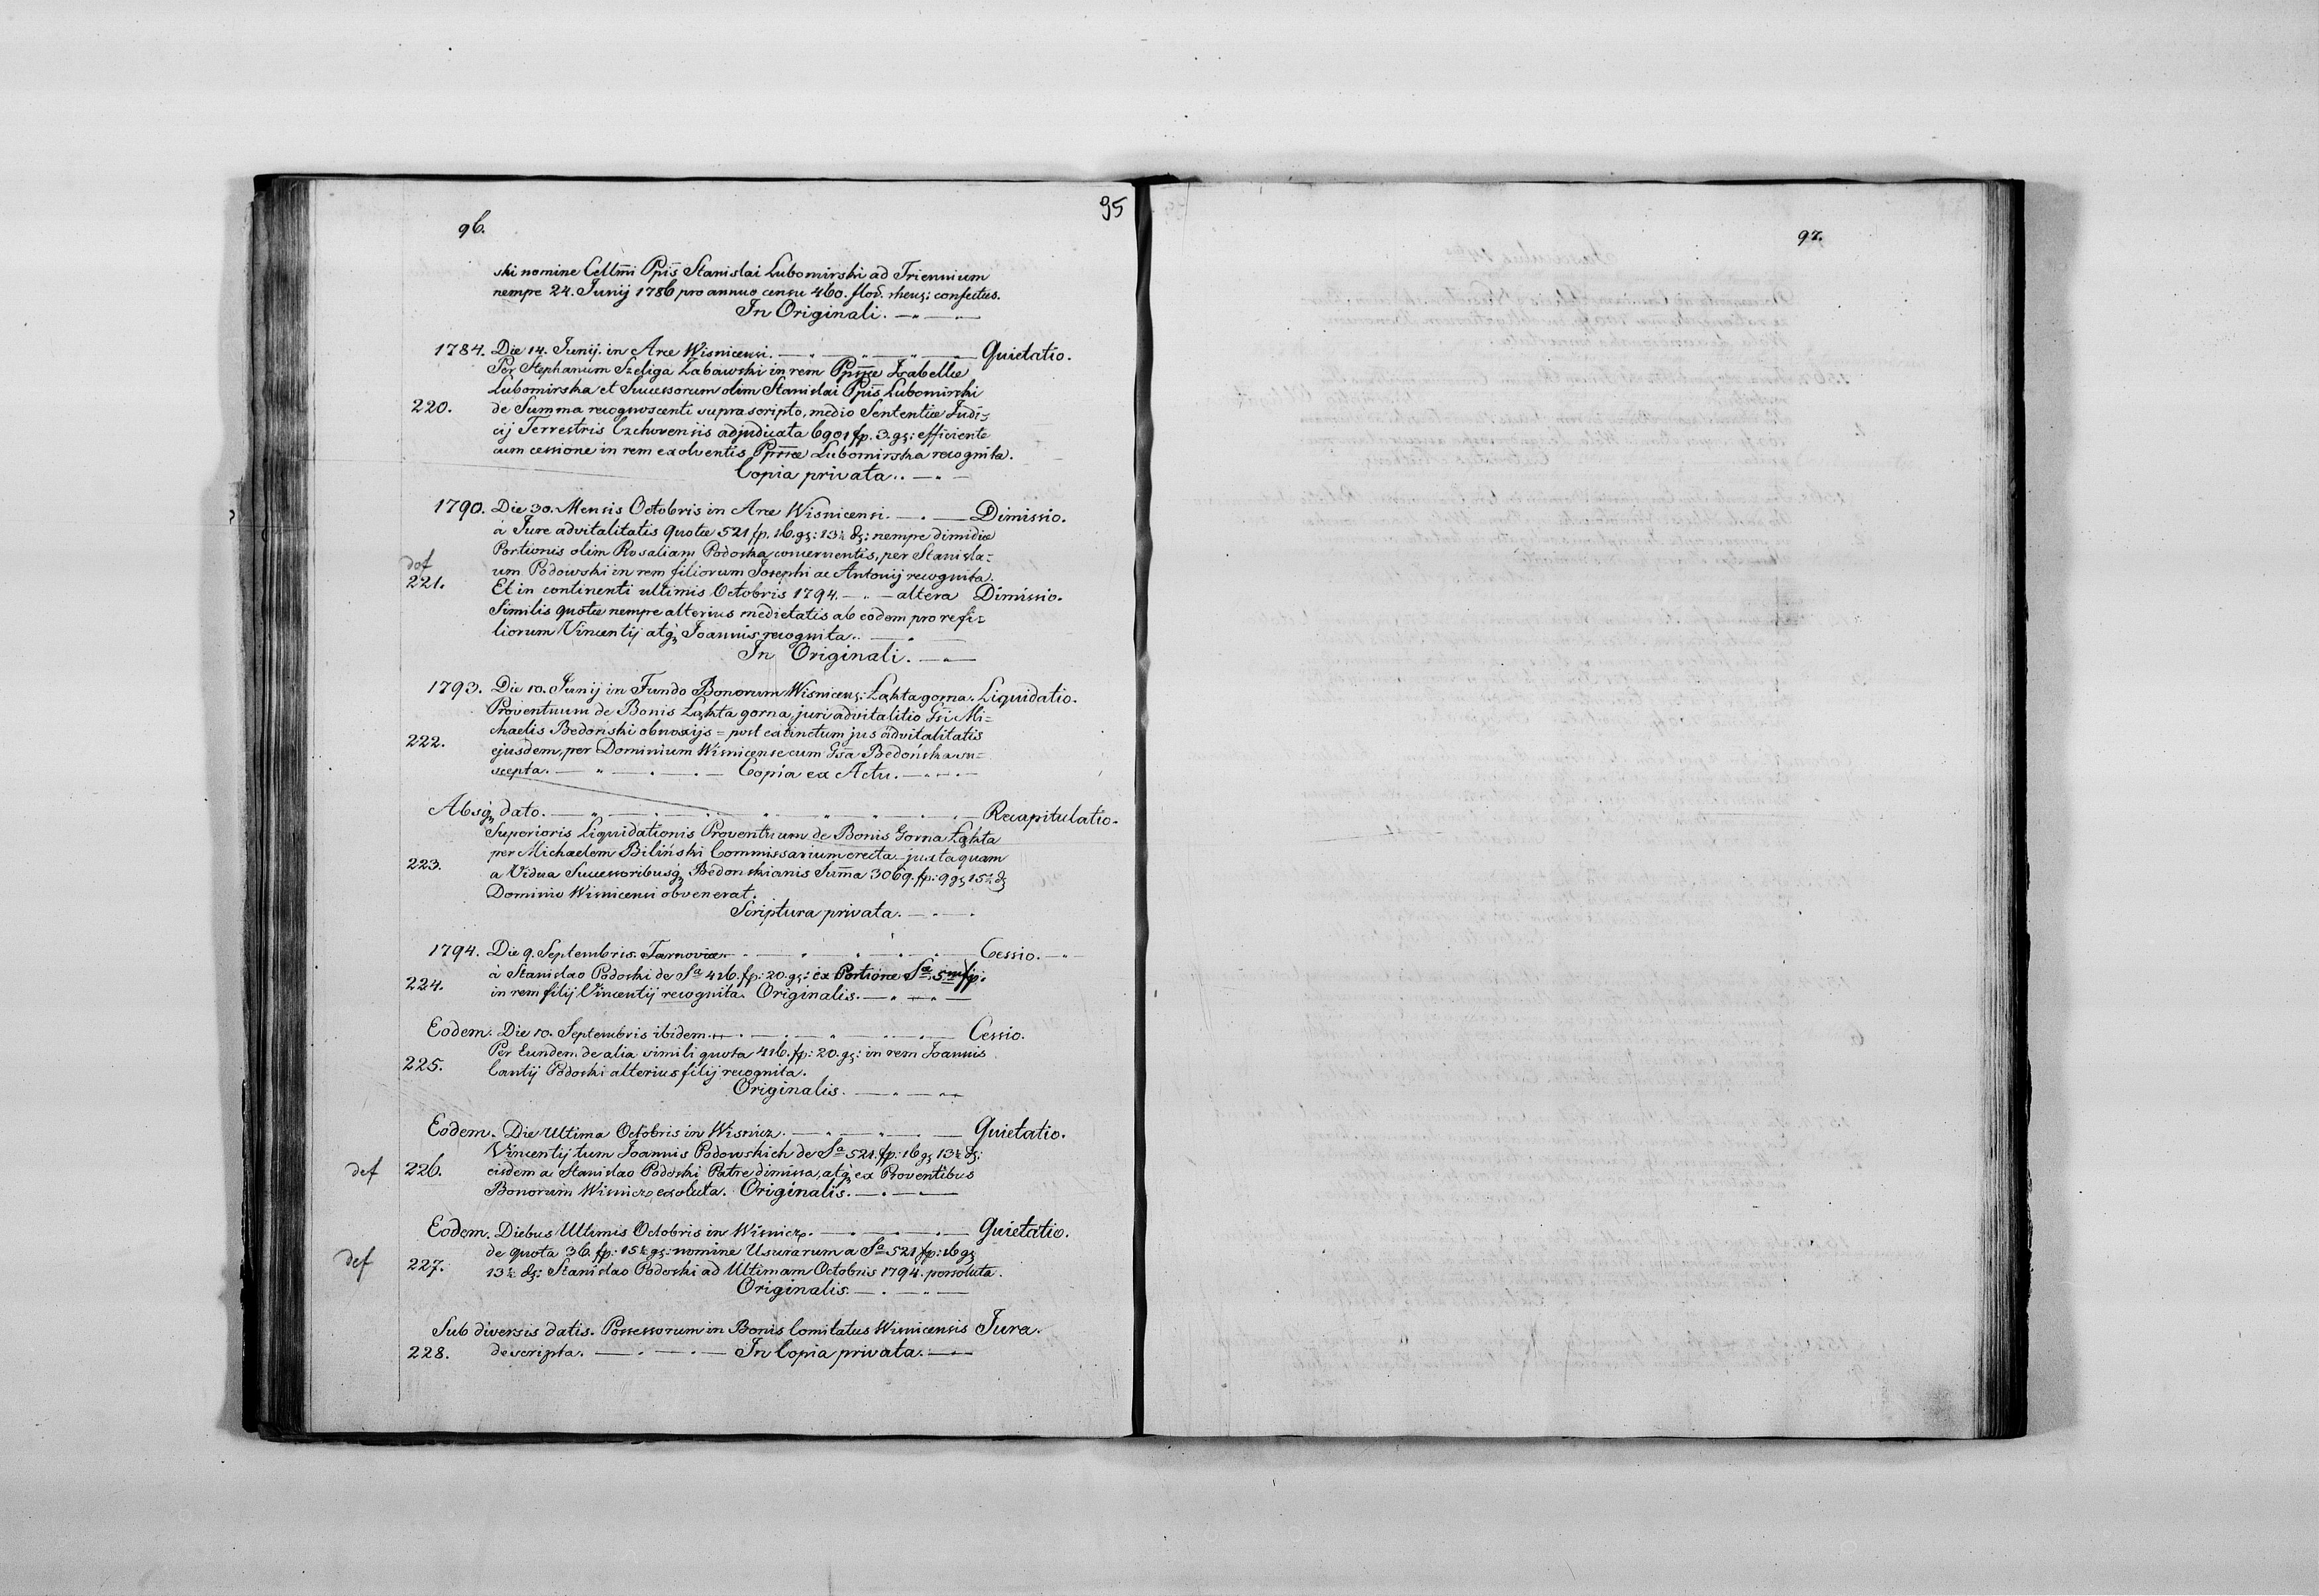 95
96.
ski nomine Cellmi Ppis Stanislai Lubomirski ad Triennium
nempe 24. Junij 1786 pro annuo censu 460. flor. rhens: confectus.
In Originali.
1784. Die 14. Junij. in Arce Wisnicensi. Quietatio.
Per Stephanum Szeliga Łabawski in rem Ppissæ Izabellæ
Lubomirska et Successorum olim Stanislai Ppis Lubomirski
220. de Summa recognoscenti suprascripto, medio Sententiæ Judi=
cij Terrestris Czchoviensis adjudicata 6901 fp. 3. gs: efficiente
cum cessione in rem exolventis Ppissæ Lubomirska recognita.
Copia privata.
1790. Die 30. Mensis Octobris in Arce Wisnicensi. Dimissio.
à Jure advitalitatis Quotæ 521 fp. 16. gs: 13½ ds: nempe dimidiæ
Portionis olim Rosaliam Podoska concernentis, per Stanisla=
def um Podowski in rem filiorum Josephi ac Antonij recognita.
221. Et in continenti ultimis Octobris 1794. altera Dimissio.
Similis quotæ nempe alterius medietatis ab eodem pro re fi=
liorum Vincentij atq, Joannis recognita.
In Originali.
1793. Die 10. Junij in Fundo Bonorum Wisnicens: Łąkta gorna. Liquidatio.
Proventuum de Bonis Łąkta gorna, juri advitalitio Gsi Mi=
chaelis Bedoński obnoxijs = post extinctum jus advitalitatis
222. ejusdem, per Dominium Wisnicense cum Gsa Bedońska su=
scepta. Copia ex Actu.
Absq, dato. Recapitulatio.
Superioris Liquidationis Proventuum de Bonis Gorna Łąkta
per Michaelem Biliński Commissarium erecta juxta quam
223. a Vidua Successoribusq, Bedonskianis Summa 3069. fp: 9 gs 15½ ds
Dominio Wisnicensi obvenerat.
Scriptura privata.
1794. Die 9. Septembris. Tarnoviæ. Cessio.
à Stanislao Podoski de Sa 416. fp: 20. gs: ex Portione Sa 5m fp.
224. in rem filij Vincentij recognita. Originalis.
Eodem. Die 10. Septembris ibidem. Cessio.
Per Eundem de alia simili quota 416. fp: 20. gs: in rem Joannis
225. Cantij Podoski alterius filij recognita.
Originalis.
Eodem. Die Ultima Octobris in Wisnicz. Quietatio.
Vincentij tum Joannis Podowskich de Sa 521. fp: 16 gs 13½ ds:
def 226. eisdem a Stanislao Podoski Patre dimissa, atq, ex Proventibus
Bonorum Wisnicz exoluta. Originalis.
Eodem. Diebus Ultimis Octobris in Wisnicz. Quietatio.
de quota 36. fp: 15½ gs: nomine Usurarum a Sa 521 fp: 16 gs
def 227. 13½ ds: Stanislao Podoski ad Ultimam Octobris 1794. persoluta.
Originalis.
Sub diversis datis. Possessorum in Bonis Comitatus Wisnicensis Jura.
228. descripta. In Copia privata.
97.